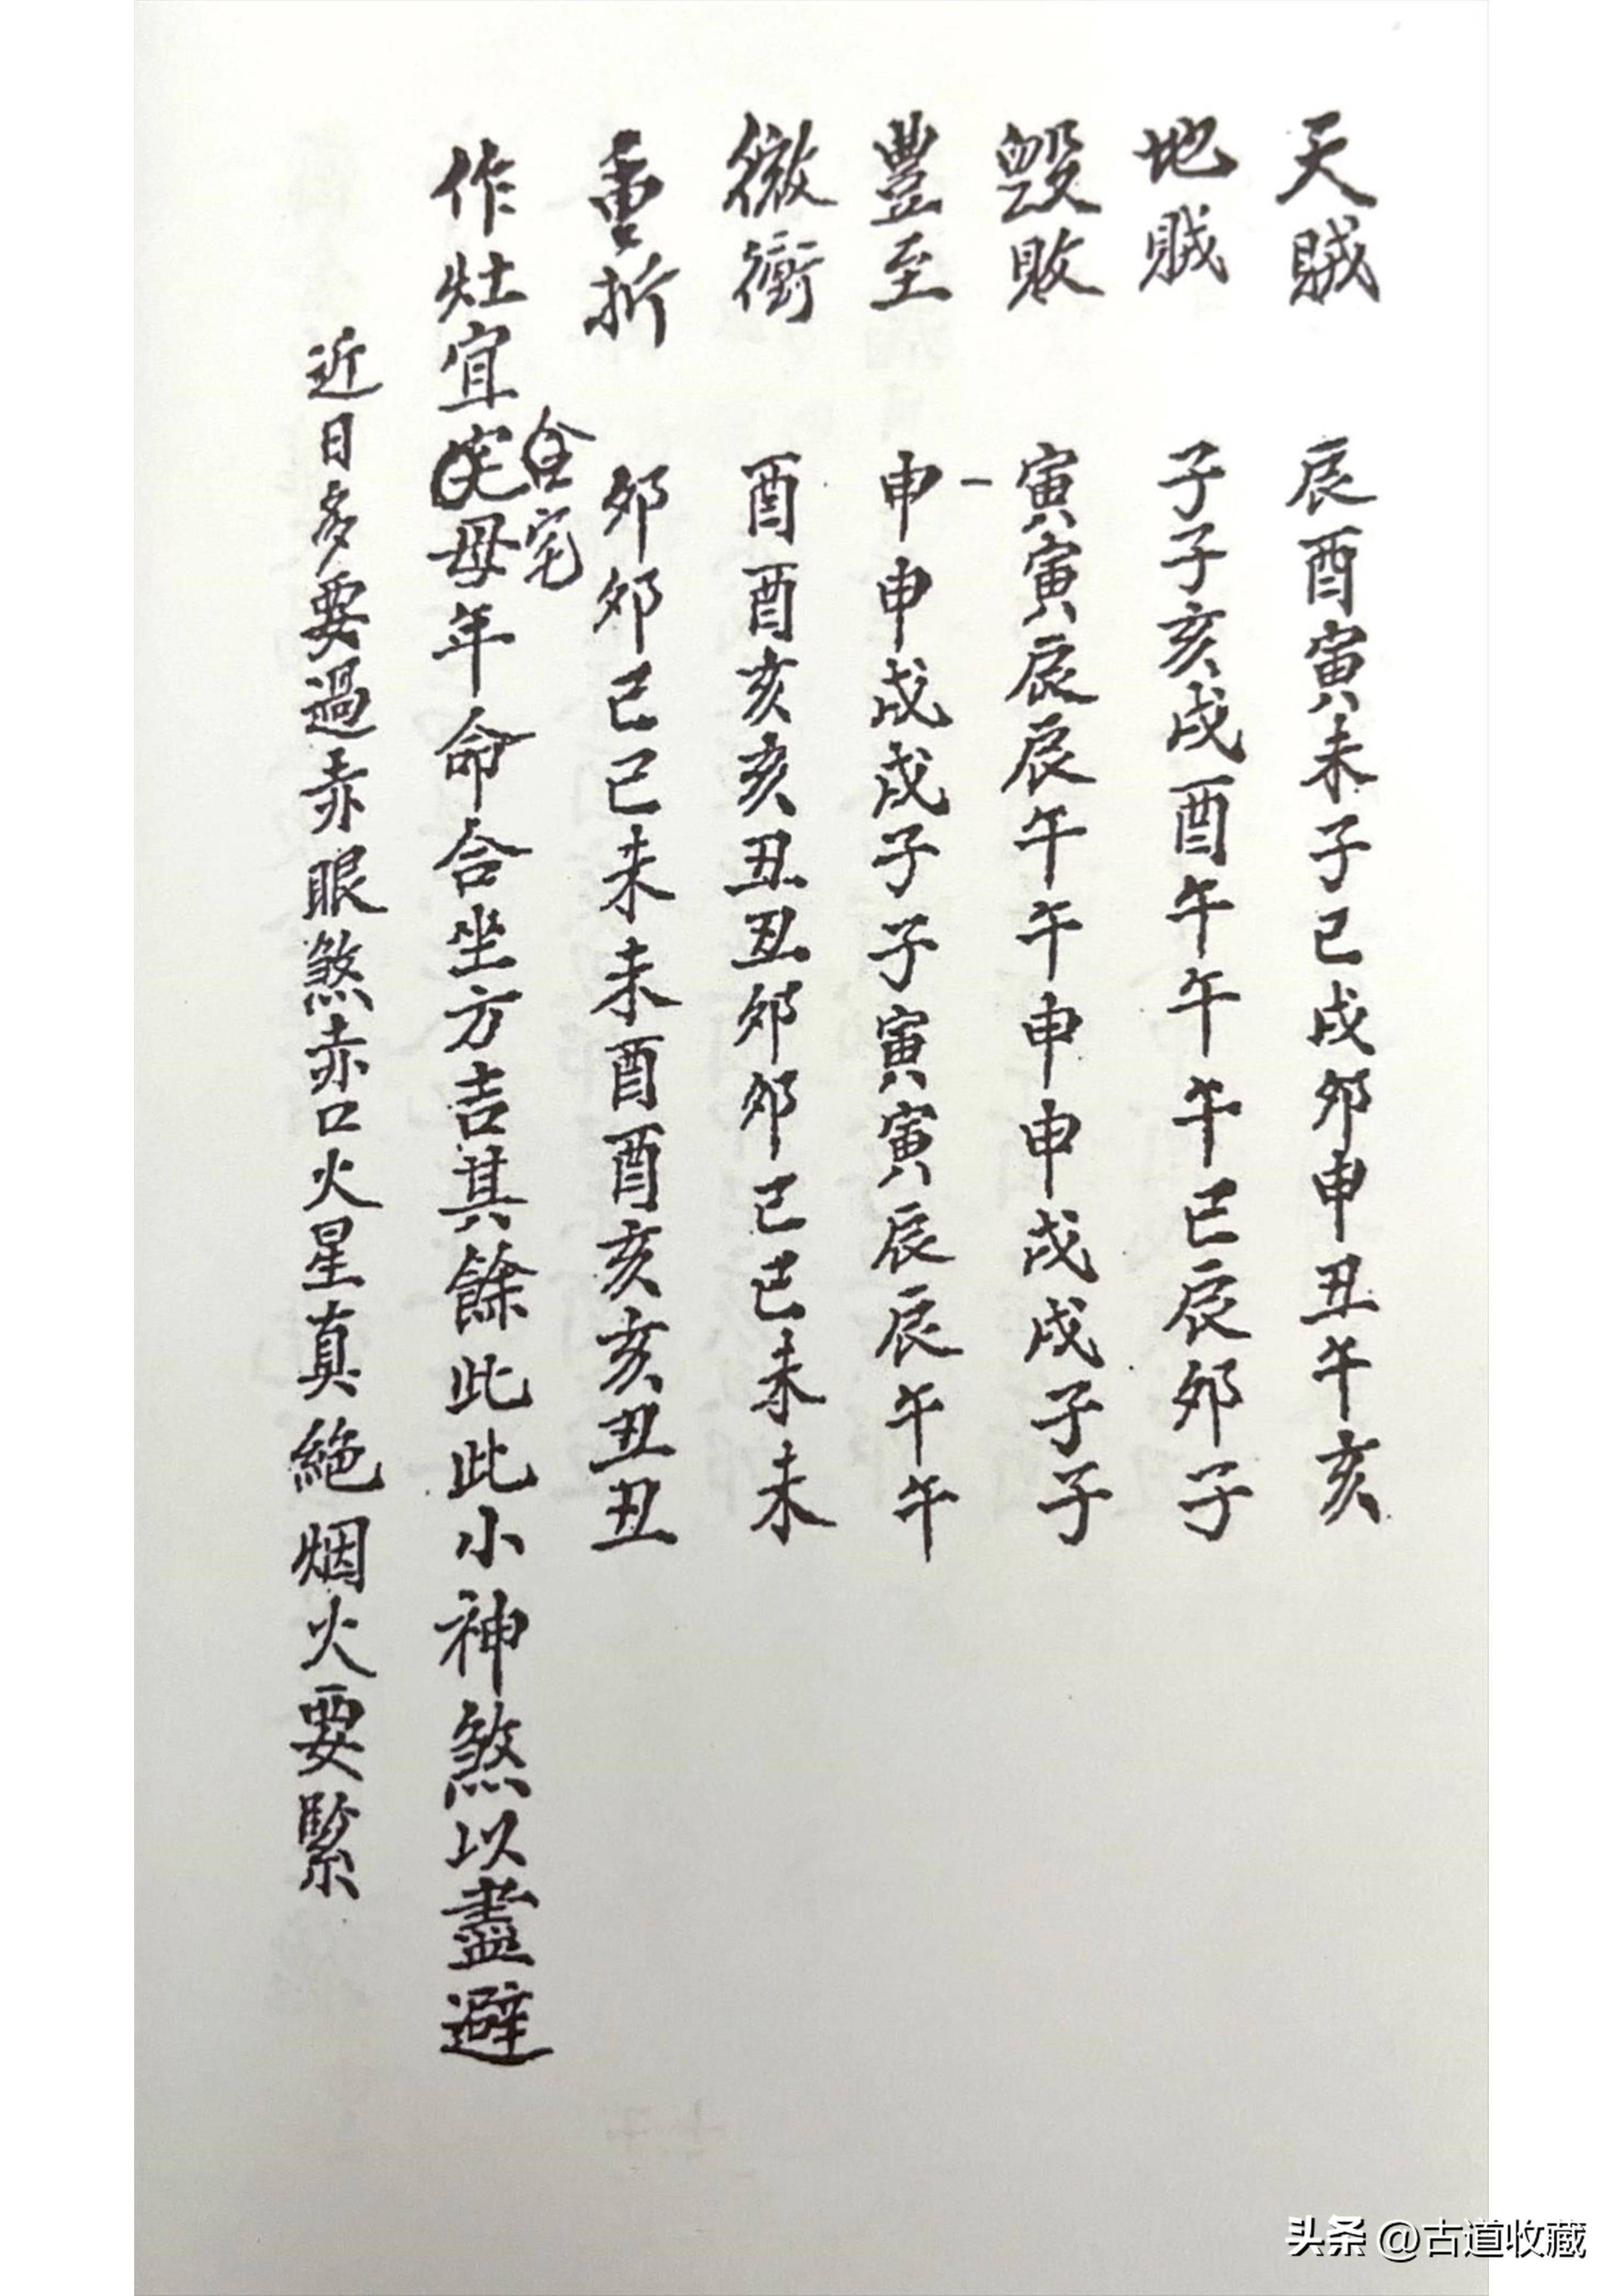 天賊 辰酉寅未子巳戌卯申丑午亥
地賊 子子亥戌酉午午午巳辰卯子
毁敗 寅寅辰辰午午申申戌戌子子
豐至 申申戌戌子子寅寅辰辰午午
徵衝 酉酉亥亥丑丑卯卯巳巳未未
折 卯卯巳巳未未酉酉亥亥丑丑
全宅
作灶宜母年命合坐方吉其餘此此小神煞以盡避
近日多要過赤眼煞赤口火星真絕烟火要緊
头条 @古道收藏